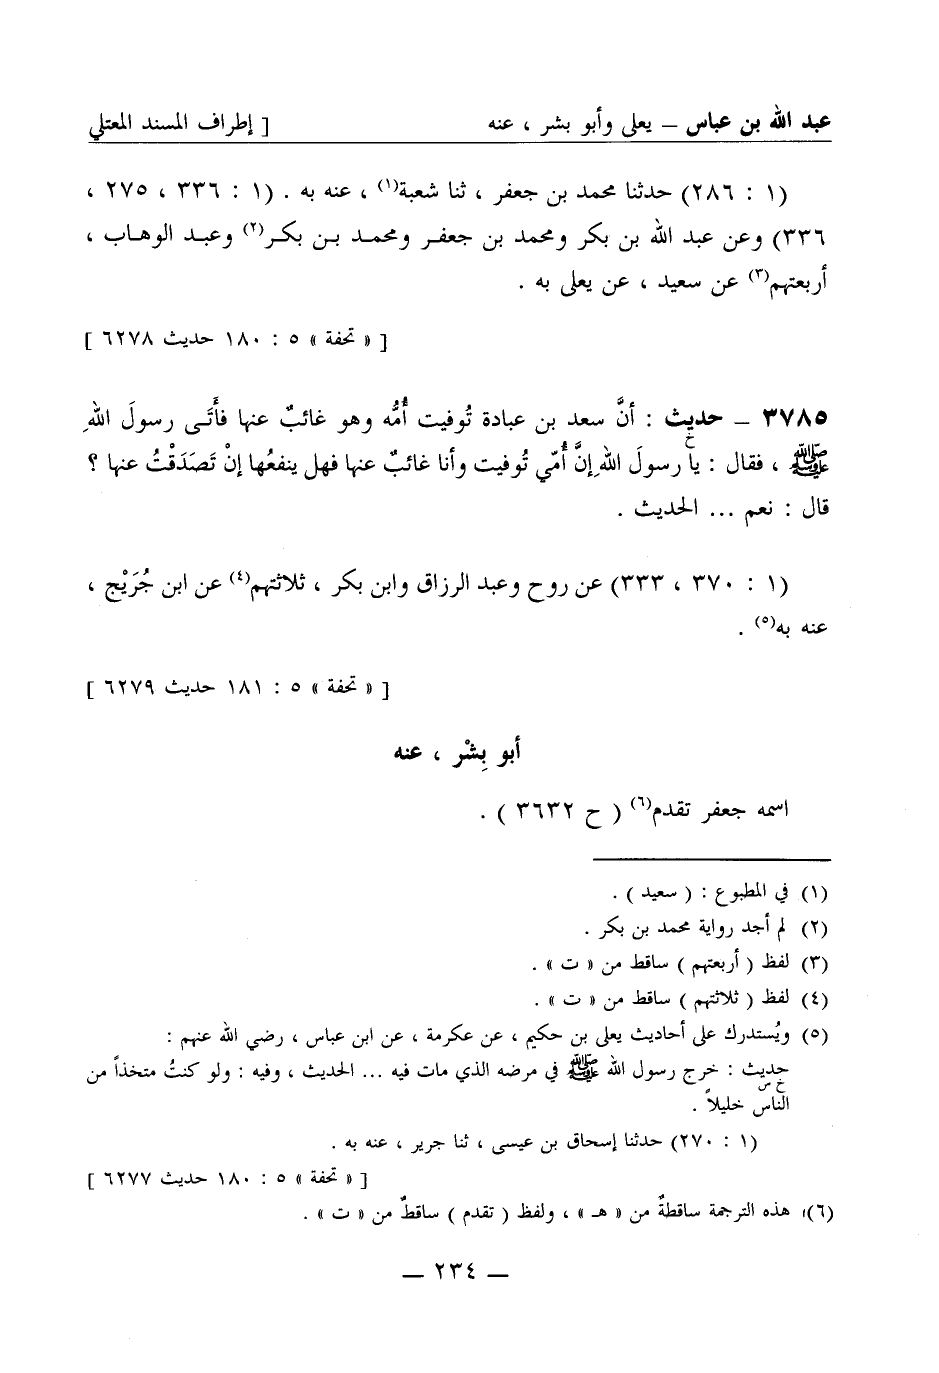 عبد الله بن عباس – يعلى وأبو بشر ، عنه [ إطراف المسند المعتلي
(١ : ٢٨٦) حدثنا محمد بن جعفر ، ثنا شعبة(١) ، عنه به . (١ : ٣٣٦ ، ٢٧٥ ،
٣٣٦) وعن عبد الله بن بكر ومحمد بن جعفر ومحمد بن بكر(٢) وعبد الوهاب ،
أربعتهم(٣) عن سعيد ، عن يعلى به .
[ « تحفة » ٥ : ١٨٠ حديث ٦٢٧٨ ]
٣٧٨٥ – حديث : أنَّ سعد بن عبادة تُوفيت أُمُّه وهو غائبٌ عنها فأَتَى رسولَ اللهِ
ﷺ ، فقال : يا رسولَ اللهِ إنَّ أُمّي تُوفيت وأنا غائبٌ عنها فهل ينفعُها إنْ تَصَدَقْتُ عنها ؟
قال : نعم ... الحديث .
(١ : ٣٧٠ ، ٣٣٣) عن روح وعبد الرزاق وابن بكر ، ثلاثتهم(٤) عن ابن جُرَيْج ،
عنه به(٥) .
[ « تحفة » ٥ : ١٨١ حديث ٦٢٧٩ ]
أبو بِشْر ، عنه
اسمه جعفر تقدم(٦) ( ح ٣٦٣٢ ) .
(١) في المطبوع : ( سعيد ) .
(٢) لم أجد رواية محمد بن بكر .
(٣) لفظ ( أربعتهم ) ساقط من « ت » .
(٤) لفظ ( ثلاثتهم ) ساقط من « ت » .
(٥) ويُستدرك على أحاديث يعلى بن حكيم ، عن عكرمة ، عن ابن عباس ، رضي الله عنهم :
حديث : خرج رسول الله ﷺ في مرضه الذي مات فيه ... الحديث ، وفيه : ولو كنتُ متخذاً من
الناس خليلاً .
(١ : ٢٧٠) حدثنا إسحاق بن عيسى ، ثنا جرير ، عنه به .
[ « تحفة » ٥ : ١٨٠ حديث ٦٢٧٧ ]
(٦) هذه الترجمة ساقطةٌ من « هـ » ، ولفظ ( تقدم ) ساقطٌ من « ت » .
– ٢٣٤ –